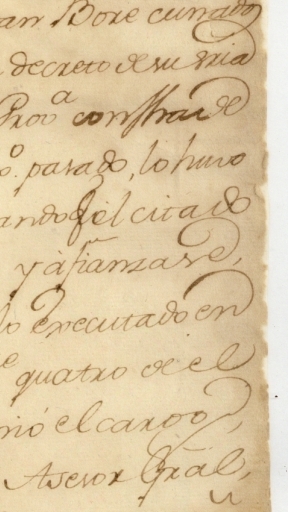 an Bore cursado
decreto de su sria
Prov.a con fha de
o. pasado, lo huvo
ando q.e el citado
y afianzase,
lo executado en
quatro de el
mó el cargo,
Asesor Gral,